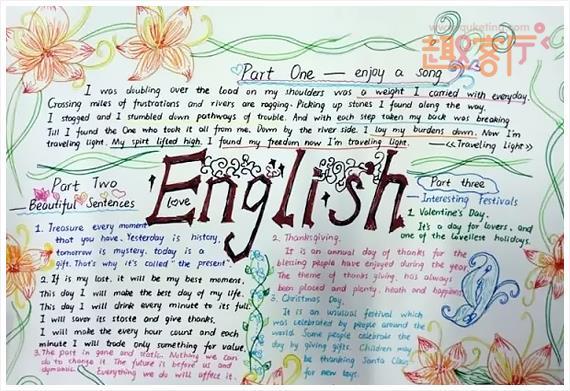 www.quketing.com
趣客厅
Part One — enjoy a song
I was doubling over the load on my shoulders was a weight I carried with everyday.
Crossing miles of frustrations and rivers are ragging. Picking up stones I found along the way,
I stagged and I stumbled down pathways of trouble. And with each step taken my back was breaking
Till I found the One who took it all from me. Down by the river side. I lay my burdens down. Now I'm
traveling light. My spirt lifted high. I found my freedom now I'm traveling light. —《Traveling Light》
English
love
Part Two
— Beautiful Sentences
1. Treasure every moment
that you have. Yesterday is history,
tomorrow is mystery, today is a
gift. That's why it's called "the present".
2. If is my last, it will be my best moment.
This day I will make the best day of my life.
This day I will drink every minute to its full.
I will savor its staste and give thanks.
I will make the every hour count and each
minute I will trade only something for value.
3. The past in gone and static. Nothing we can
do to change it The future is before us and
dynamic. Everything we do will affect it.
Part three
— Interesting Festivals
1 Valentine's Day.
It's a day for lovers, and
one of the loveliest holidays.
2. Thanksgiving.
It is an annual day of thanks for the
blessing people have enjoyed during the year.
The theme of thanks giving has always
been placed and plenty, heath and happiness.
3. Christmas Day.
It is an unusual festival which
was celebrated by people around the
world. Some people celebrate the
day by giving gifts. Children may
be thanking Santa Claus
for new toys.